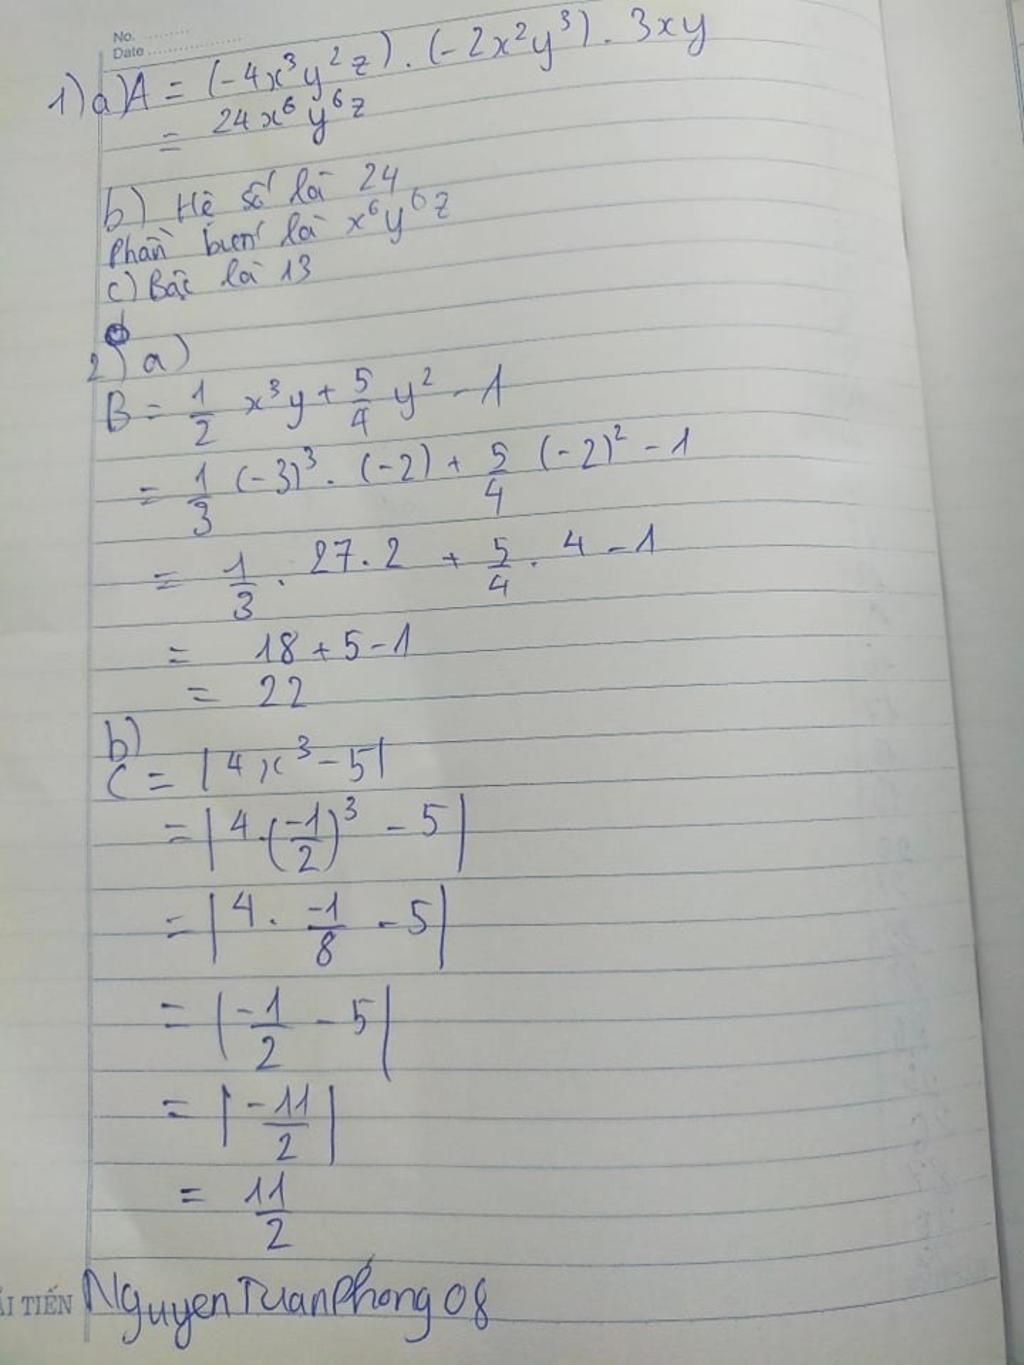 No. ........
Date ..................
1) a) A = (-4x³y²z) . (-2x²y³) . 3xy
= 24x⁶y⁶z
b) Hệ số là 24
Phần biến là x⁶y⁶z
c) Bậc là 13
2) a)
B = 1/2 x³y + 5/4 y² - 1
= 1/3 (-3)³ . (-2) + 5/4 (-2)² - 1
= 1/3 . 27 . 2 + 5/4 . 4 - 1
= 18 + 5 - 1
= 22
b)
C = |4x³ - 5|
= |4 . (-1/2)³ - 5|
= |4 . -1/8 - 5|
= |-1/2 - 5|
= |-11/2|
= 11/2
TIẾN NguyenTuanPhong08